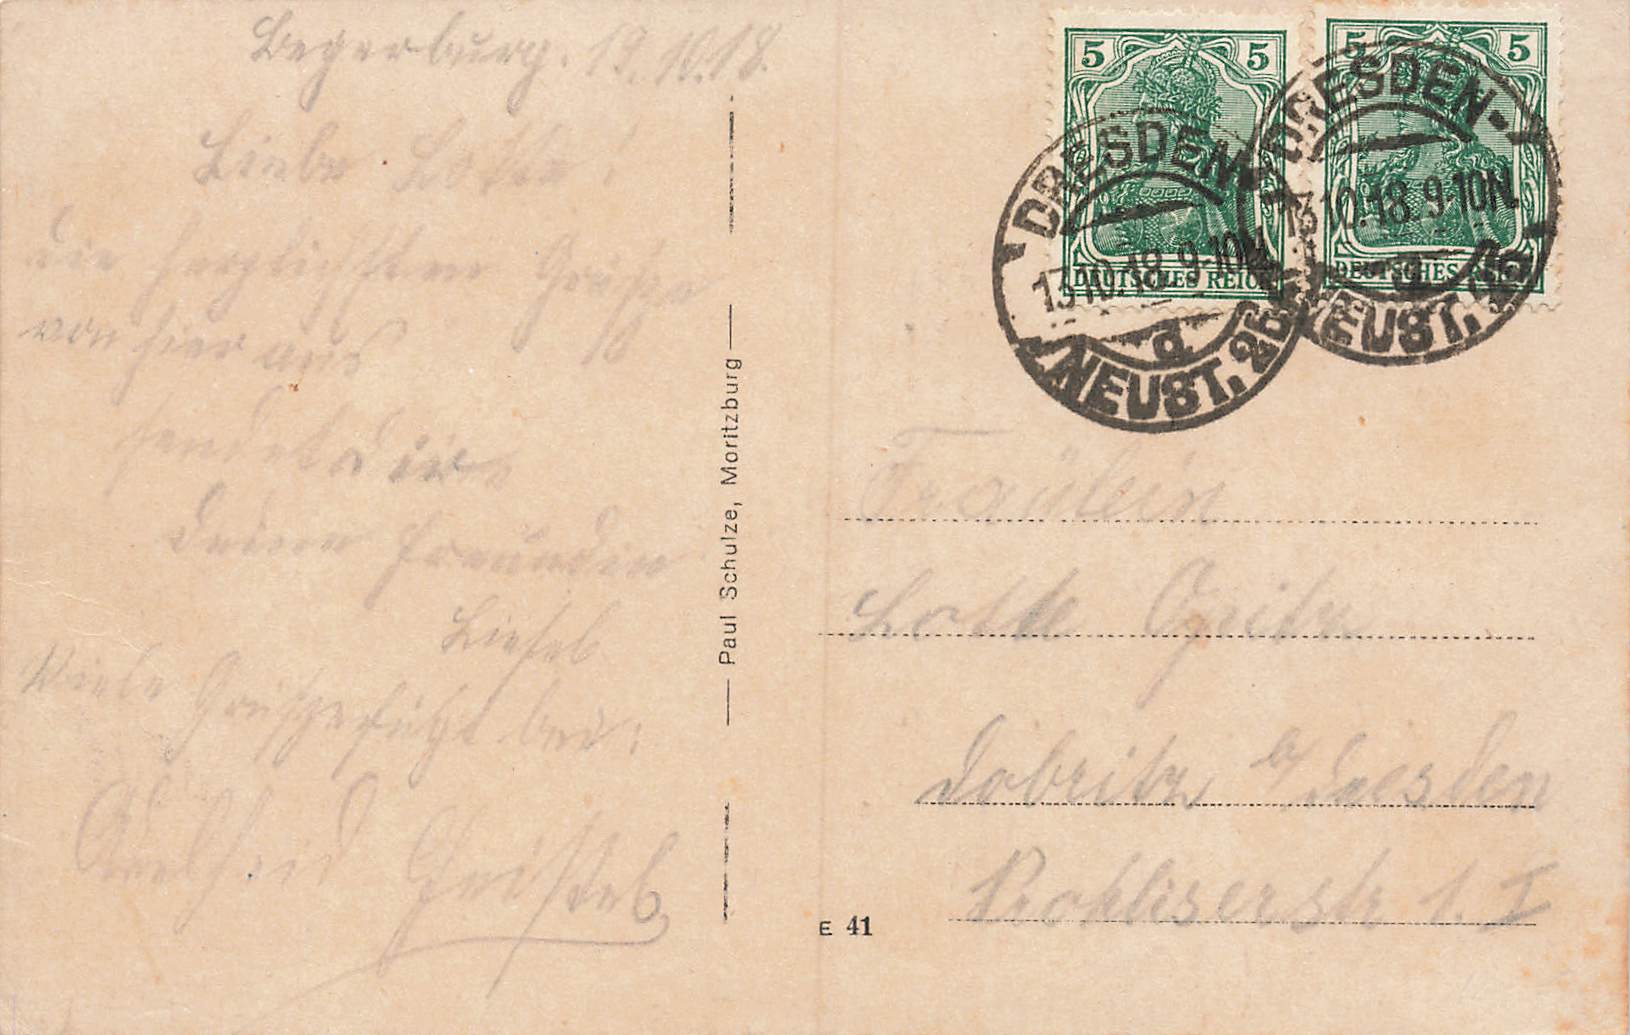 Begerburg. 13.10.18.
Liebe Lotte!
die herzlichsten Grüße
von hier aus
sendet dir
deine Freundin
Liesel
Viele Grüße
Adelheid
Paul Schulze, Moritzburg
5 5
DEUTSCHES REICH
5 5
DEUTSCHES REICH
DRESDEN-
13.10.18. 9-10N.
d
NEUST. 26
DRESDEN-
13.10.18. 9-10N.
d
NEUST. 26
Fräulein
Lotte Opitz
Dobritz b/ Dresden
Prohliserstr 1. I
E 41